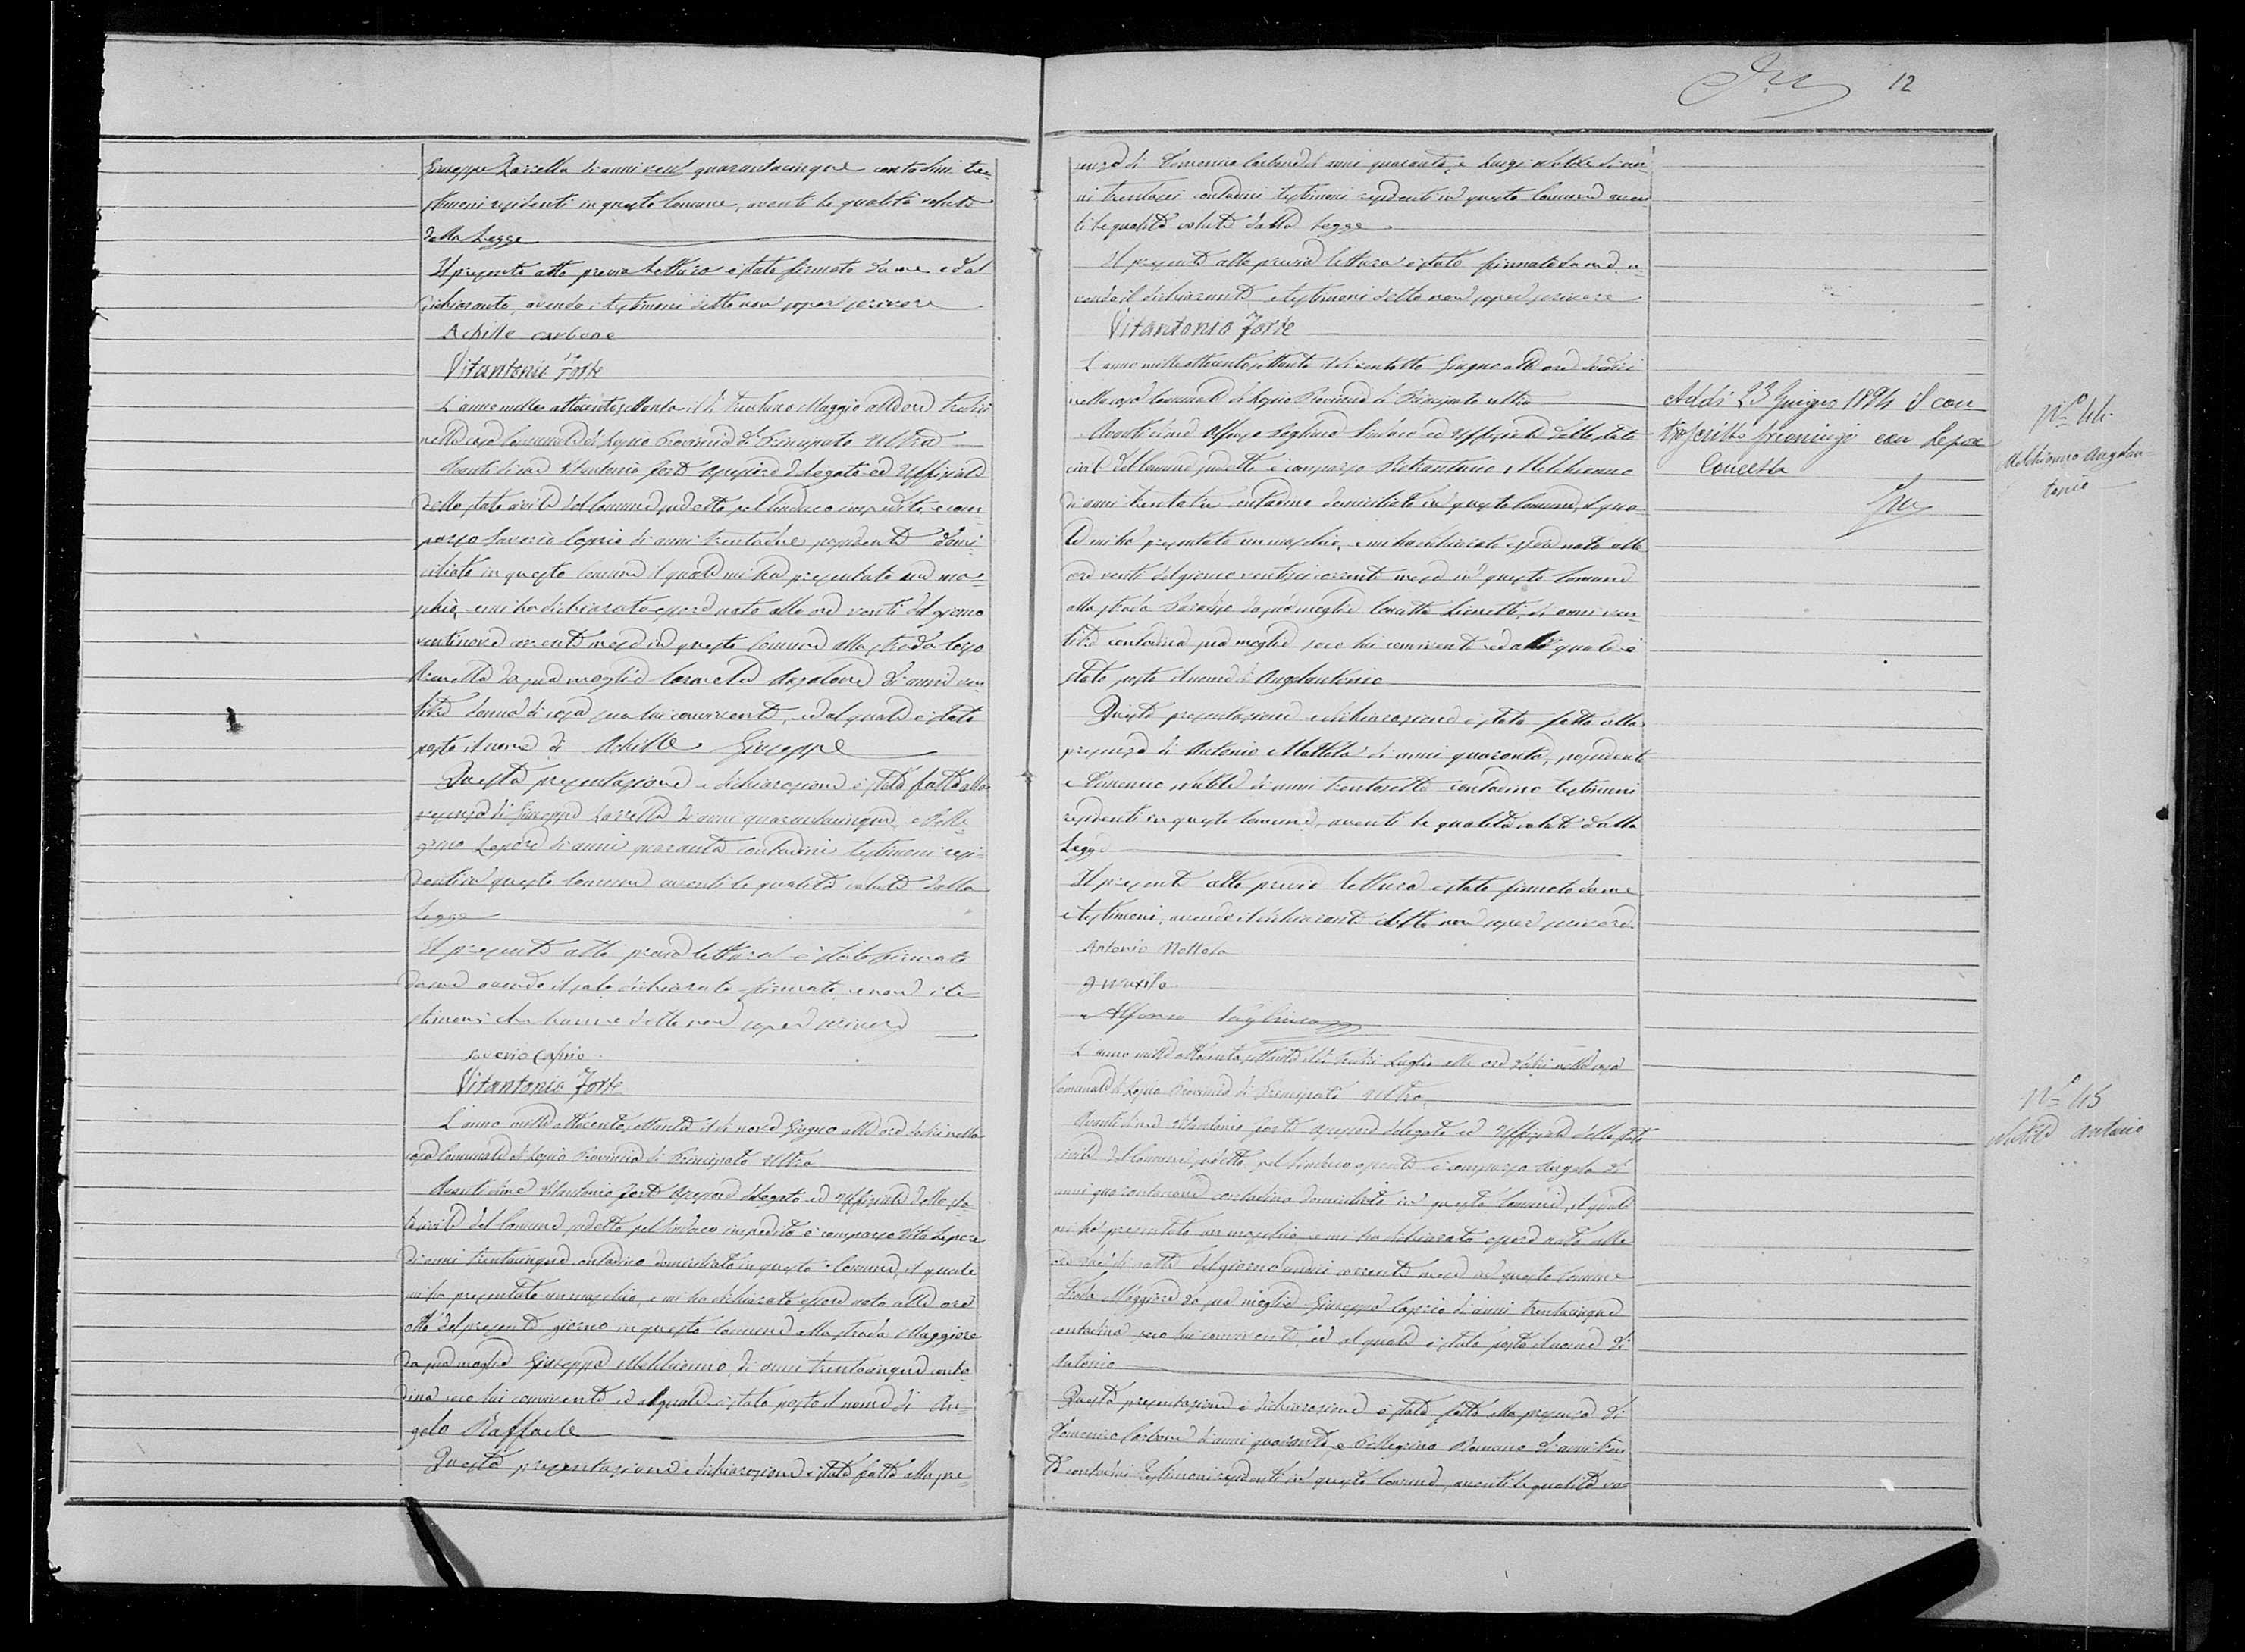 Giuseppe Zarrella di anni quarantacinque contadini te-
stimoni residenti in questo Comune, aventi le qualità volute
dalla Legge
Il presente atto previa lettura è stato firmato da me e dal
dichiarante, avendo i testimoni detto non saper scrivere
Achille carbone
Vitantonio Forte
L'anno mille ottocentosettanta il dì trentuno Maggio alle ore tredici
nella casa Comunale di Lapio Provincia di Principato Ultra
Avanti di me Vitantonio Forte assessore delegato ed Uffiziale
dello stato civile del Comune sudetto pel Sindaco impedito, è com-
parso Saverio Caprio di anni trentadue possidente domi-
ciliato in questo Comune il quale mi ha presentato un ma-
schio, e mi ha dichiarato essere nato alle ore venti del giorno
ventinove corrente mese in questo Comune alla strada
da sua moglie di anni ven-
titre donna di casa seco lui convivente, ed al quale è stato
posto il nome di Achille Giuseppe
Questa presentazione e dichiarazione è stata fatta alla
presenza di Giuseppe Zarrella di anni quarantacinque, e Pelle-
grino Lepore di anni quaranta contadini testimoni resi-
denti in questo Comune aventi le qualità volute dalla
Legge
Il presente atto previa lettura è stato firmato
da me avendo il solo dichiarante firmato e non i te-
stimoni che hanno detto non saper scrivere
saverio Caprio
Vitantonio Forte
L'anno mille ottocentosettanta il dì nove Giugno alle ore dodici nella
casa Comunale di Lapio Provincia di Principato Ultra
Avanti di me Vitantonio Forte assessore delegato ed Uffiziale dello sta-
to civile del Comune sudetto pel Sindaco impedito è comparso Vito Lepore
di anni trentacinque contadino domiciliato in questo Comune, il quale
mi ha presentato un maschio, e mi ha dichiarato essere nato alle ore
otto del presente giorno in questo Comune alla strada Maggiore
da sua moglie Giuseppa Melchionno, di anni trentacinque conta-
dina seco lui convivente ed al quale è stato posto il nome di An-
gelo Raffaele
Questa presentazione e dichiarazione è stata fatta alla pre-
12
senza di Domenico Carbone di anni quaranta, e Luigi di an-
ni trentasei contadini testimoni residenti in questo Comune aven-
ti le qualità volute dalla Legge
Il presente atto previa lettura è stato firmato da me, a-
vendo il dichiarante e testimoni detto non saper scrivere
Vitantonio Forte
L'anno mille ottocentosettanta il dì ventotto Giugno alle ore dodici
nella casa Comunale di Lapio Provincia di Principato ultra
Avanti di me Alfonso Pagliuca Sindaco ed Uffiziale dello stato
civile del Comune sudetto è comparso Pietrantonio Melchionno
di anni contadino domiciliato in questo Comune, il qua-
le mi ha presentato un maschio, e mi ha dichiarato essere nato alle
ore venti del giorno ventisei corrente mese in questo Comune
alla strada da sua moglie di anni ven-
titre contadina sua moglie seco lui convivente ed al quale è
stato posto il nome di Angelantonio
Questa presentazione e dichiarazione è stata fatta alla
presenza di Antonio Mottola di anni quaranta, possidente
e Domenico di anni trentasette contadino testimoni
residenti in questo Comune, aventi le qualità volute dalla
Legge
Il presente atto previa lettura è stato firmato da me
e testimoni, avendo il dichiarante detto non saper scrivere.
Antonio Mottola
Alfonso Pagliuca
L'anno mille ottocentosettanta il dì tredici Luglio alle ore dodici nella casa
Comunale di Lapio Provincia di Principato ultra
Avanti di me Vitantonio Forte assessore delegato ed Uffiziale dello stato
civile del Comune sudetto, pel Sindaco assente è comparso Angelo di
anni quarantanove contadino domiciliato in questo Comune, il quale
mi ha presentato un maschio e mi ha dichiarato essere nato alle
ore di notte del giorno undici corrente mese in questo Comune
strada Maggiore da sua moglie Giuseppa Caprio di anni trentacinque
contadina seco lui convivente, ed al quale è stato posto il nome di
Antonio
Questa presentazione e dichiarazione è stata fatta alla presenza di
Domenico Carbone di anni quaranta, e Pellegrino Romano di anni tren-
ta contadini testimoni residenti in questo Comune, aventi le qualità vo-
Addì 23 Giugno 1894 il con
troscritto con Lepore
Concetta
N.o 44.
Melchionno Angelan-
tonio
N.o 45
Antonio